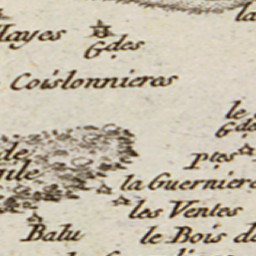 la
Hayes
Gdes
Coislonnieres
le
Gdes
de
ptes
la Guerniere
les Ventes
Balu
le Bois de